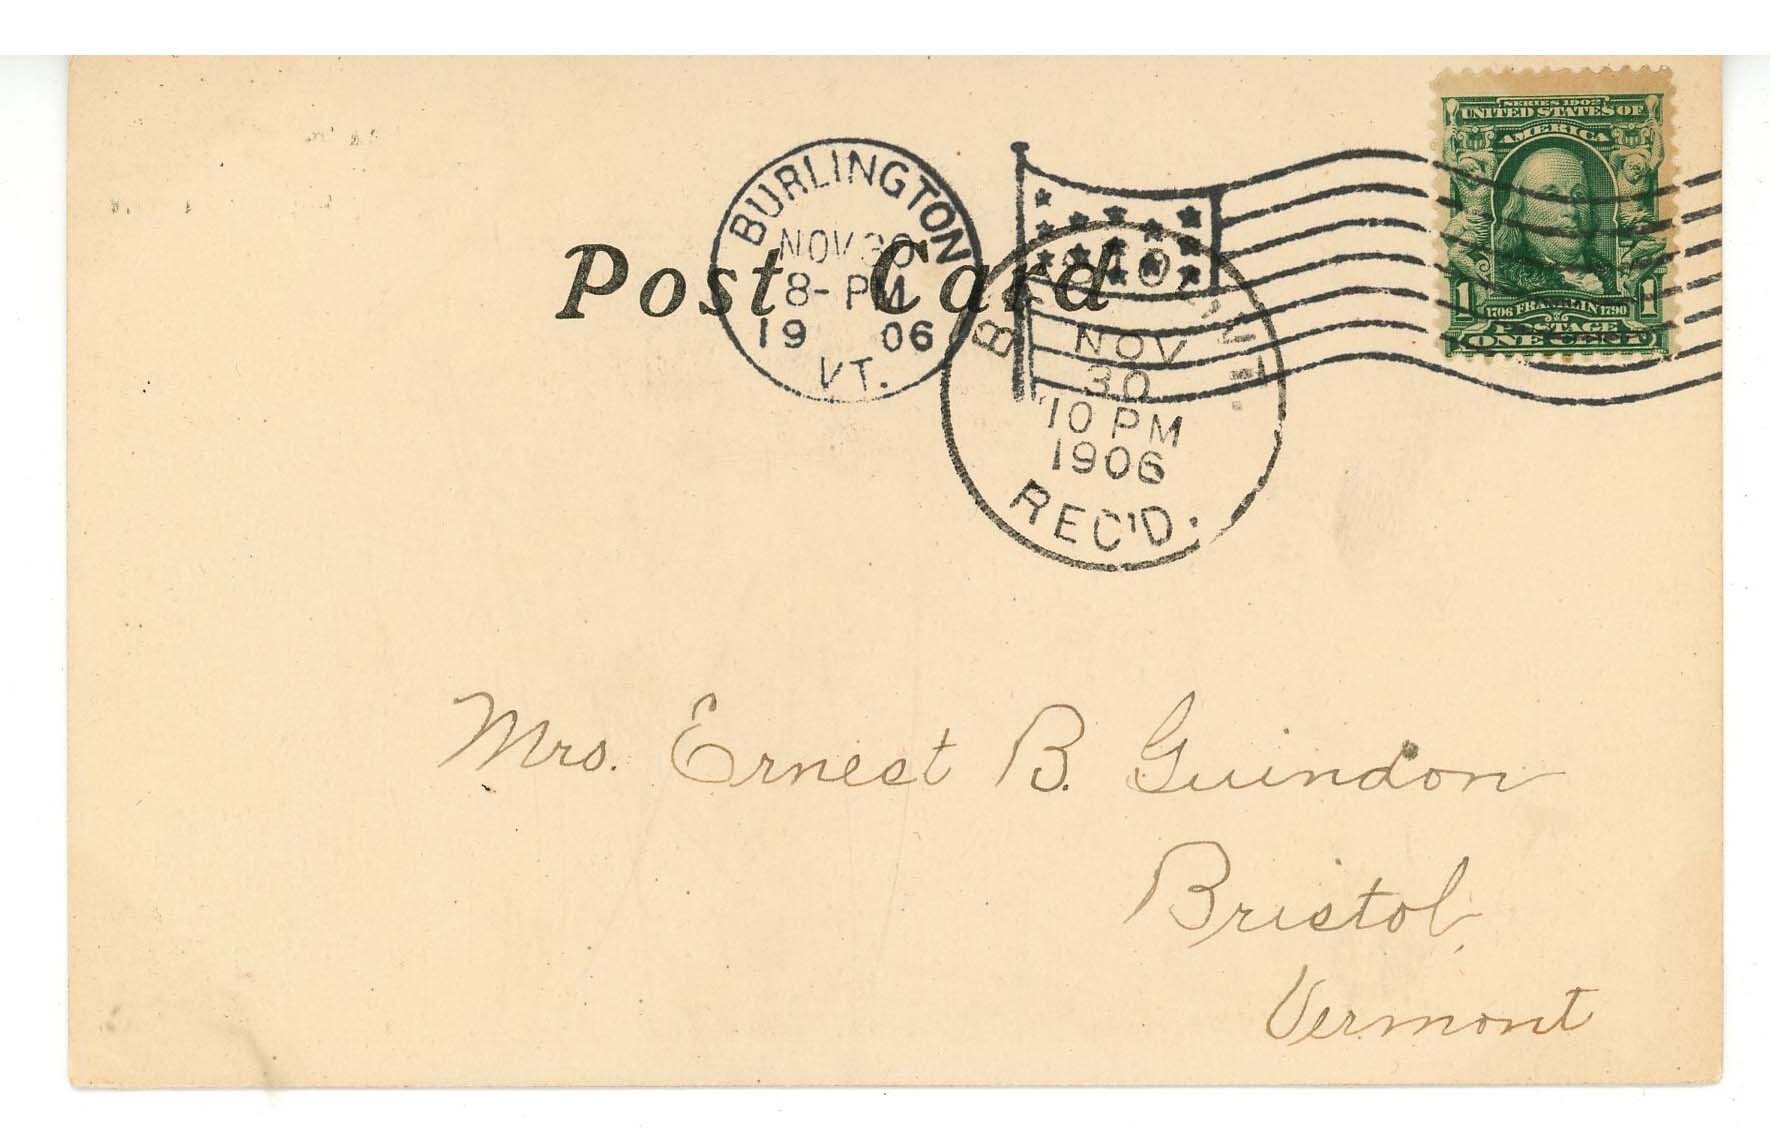 SERIES 1902
UNITED STATES OF
AMERICA
1 1706 FRANKLIN 1790 1
POSTAGE
ONE CENT
Post Card
BURLINGTON
NOV 30
8- PM
19 06
VT.
NOV
30
10 PM
1906
REC'D.
Mrs. Ernest B. Guindon
Bristol,
Vermont